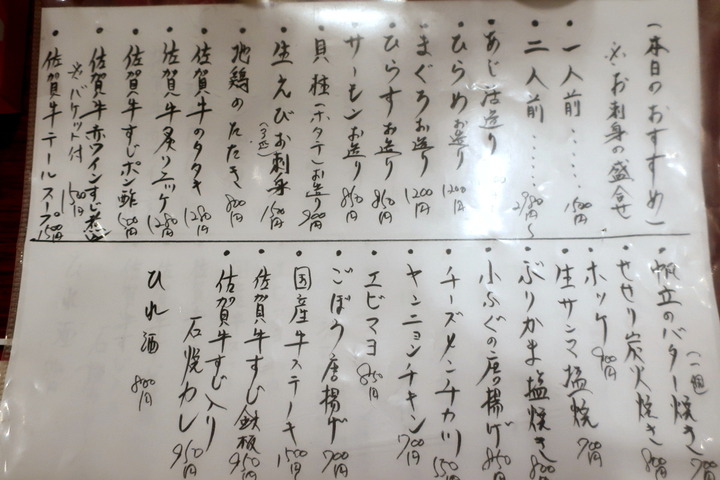 (本日のおすすめ)
※お刺身の盛合せ
・一人前・・・・・・1500円
・二人前・・・・・・2980円〜
・あじ活造り
・ひらめお造り 1200円
・まぐろお造り 1200円
・ひらすお造り 850円
・サーモンお造り 850円
・貝柱(ホタテ)お造り 900円
・生えびお刺身(3匹) 1500円
・地鶏のたたき 800円
・佐賀牛のタタキ 1280円
・佐賀牛炙りニッケ 1280円
・佐賀牛すじポン酢 500円
・佐賀牛赤ワインすじ煮込
※バケット付 1500円
・佐賀牛テールスープ 1500円
・帆立のバター焼き(一個) 700円
・せせり炭火焼き 800円
・ホッケ 900円
・生サンマ塩焼 700円
・ぶりかま塩焼き 800円
・小ふぐの唐揚げ 850円
・チーズメンチカツ 550円
・ヤンニョンチキン 700円
・エビマヨ 850円
・ごぼう唐揚げ 700円
・国産牛ステーキ 1500円
・佐賀牛すじ鉄板 950円
・佐賀牛すじ入り
石焼カレー 950円
ひれ酒 800円